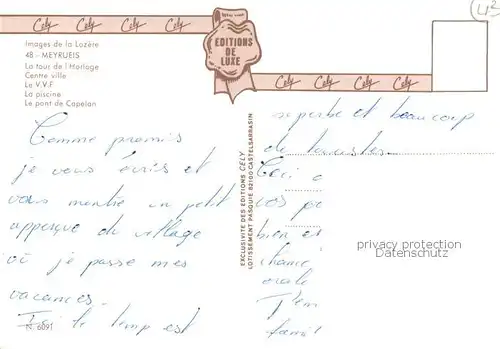 Cely Cely Cely
Images de la Lozère
48 - MEYRUEIS
La tour de l'Horloge
Centre ville
Le V.V.F
La piscine
Le pont de Capelan
EDITIONS
DE
LUXE
Cely Cely Cely Cely
42
EXCLUSIVITE DES EDITIONS CELY
LOTISSEMENT PASQUIE 82100 CASTELSARRASIN
Comme promis
je vous écris et
vous montre un petit
apperçue du village
où je passe mes
vacances.
Ici le temp est
N. 6091
superbe et beaucoup
de touristes
Ceci
vos
bien et
orale
privacy protection
Datenschutz